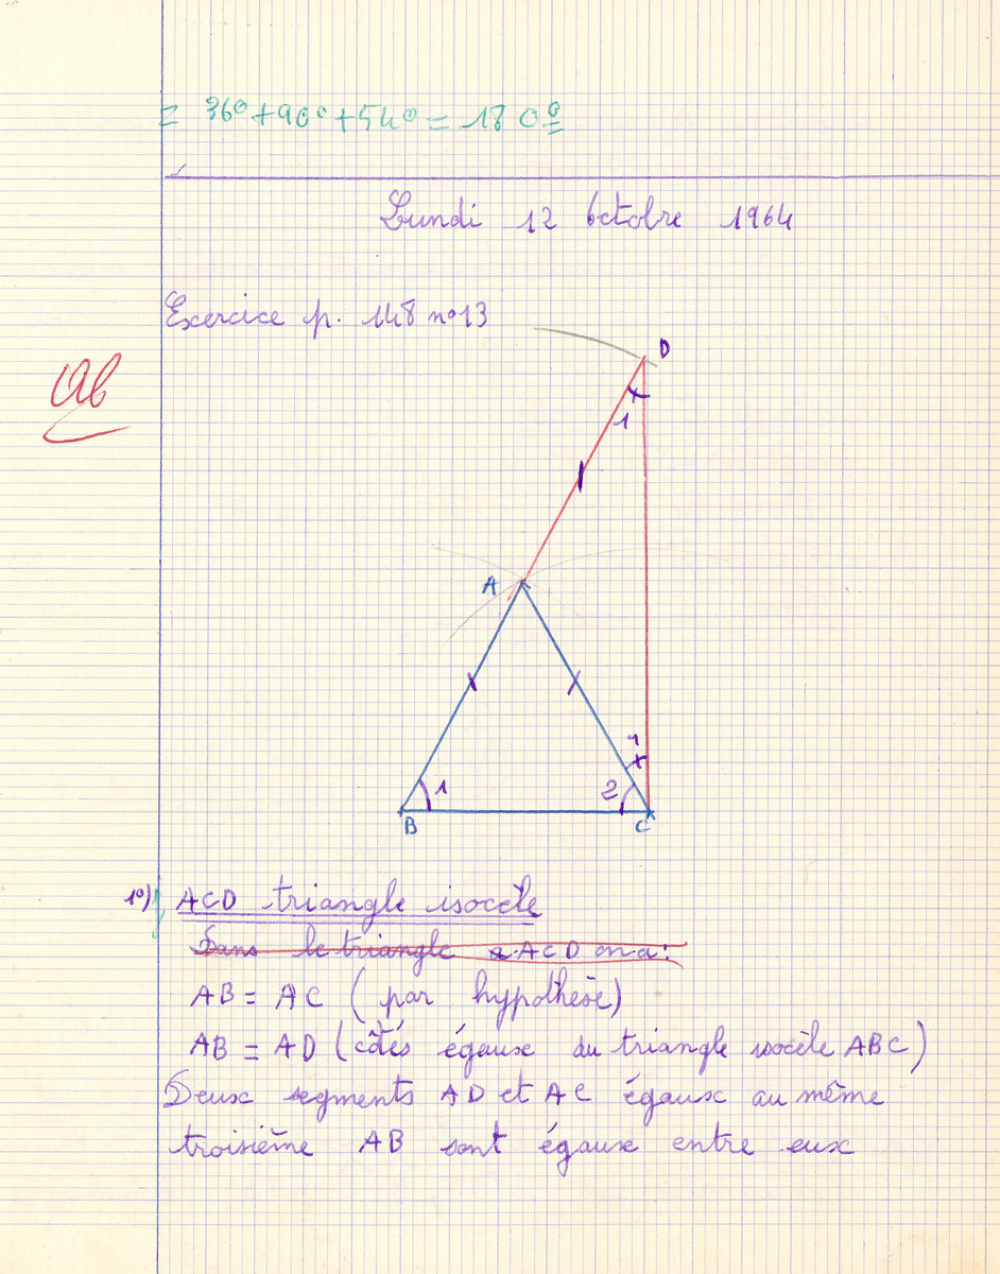 = 36° + 90° + 54° = 180°
Lundi 12 Octobre 1964
Exercice p. 148 n°13
ab
D
1
A
1
1
2
B
C
1°) ACD triangle isocèle
Dans le triangle ACD on a :
AB = AC ( par hypothèse)
AB = AD ( côtés égaux du triangle isocèle ABC )
Deux segments AD et AC égaux au même
troisième AB sont égaux entre eux